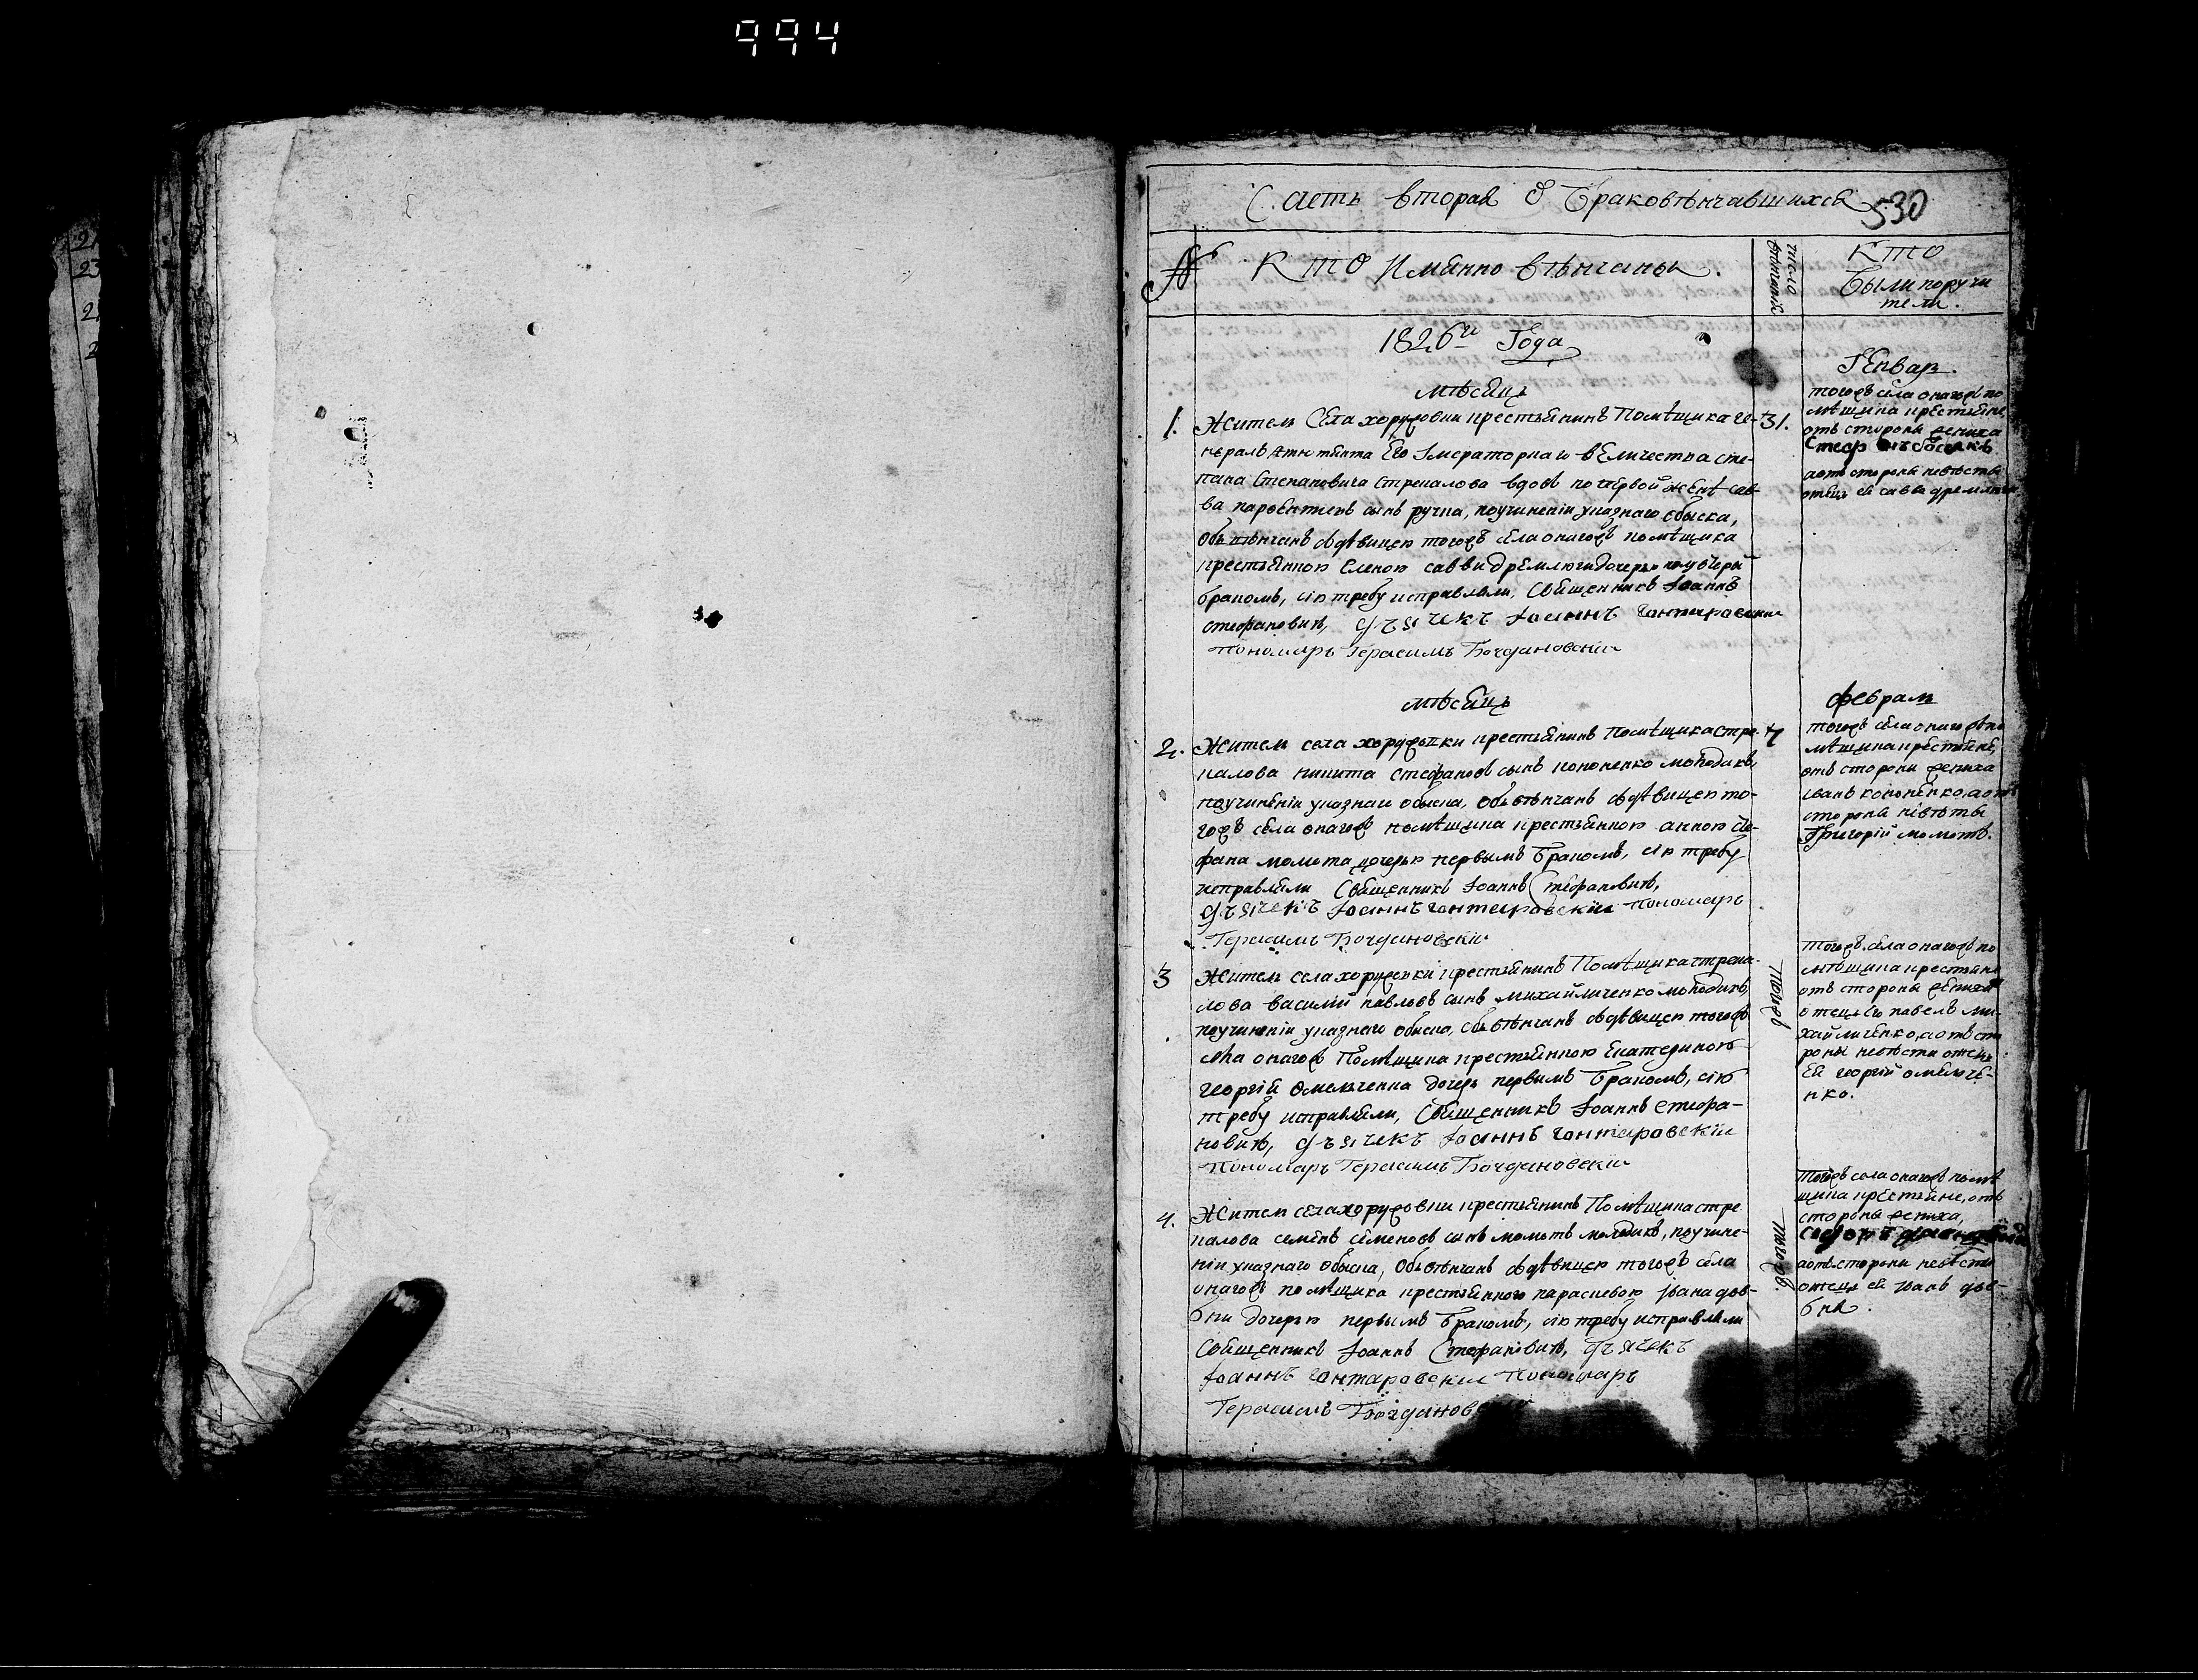 994
21
23
2
2
Часть вторая О Браковѣнчавшихся
530
№
Кто Имянно вѣнчаны
число
Кто
Были поручи
тели.
1826го Года
мѣсяцъ
Генвар.
1. Житель Села хоружовки крестьянинъ Помѣщика Ге-
нералъ Его Імператорнаго вЕличества Сте-
пана Степановича Стрекалова вдовъ по первой женѣ сав-
ва сынъ ручка, поучиненіи указнаго обыска,
Обвѣнчанъ сдѣвицею тогожъ села онагожъ помѣщика
крестьянкою Еленою саввы дремлюги дочерью
бракомъ, сію требу исправляли, Священникъ Іоаннъ
Стефановичъ, дъячекъ Іоаннъ Гонтаровскіи
Пономаръ Герасимъ Богдановскіи
31.
тогожъ села онагожъ по
мѣщика крестьяне,
отъ стороны жениха
аотъ стороны невѣсты
отецъ ей савва дремлюга
мѣсяцъ
февраль
2. Житель села хоружовки крестьянинъ Помѣщика Стре-
калова никита стефановъ сынъ кононенко молодикъ,
поучиненіи указнаго обыска, Обвѣнчанъ сдѣвицею то-
гожъ села онагожъ помѣщика крестьянкою анною Сте-
фана момота дочерью первымъ Бракомъ, сію требу
исправляли Священникъ Іоаннъ Стефановичъ,
дъячекъ Іоаннъ Гонтаровскіи Пономаръ
Герасимъ Богдановскіи
7
тогожъ села онагожъ по
мѣщика крестьяне,
отъ стороны жениха
іванъ кононенко, аотъ
стороны невѣсты
Григорій момотъ.
3 Житель села хоружевки крестьянинъ Помѣщика стрека-
лова василій павловъ сынъ михайличенко молодикъ,
поучиненіи указнаго обыска, Обвѣнчанъ сдѣвицею тогожъ
села онагожъ Помѣщика крестьянкою Екатериною
георгія Омельченка дочерь первимъ Бракомъ, сію
требу исправляли, Священникъ Іоаннъ Стефа-
новичъ, дъячекъ Іоаннъ Гонтаровскіи
Пономаръ Герасимъ Богдановскіи
тогожъ
тогожъ села онагожъ по
мѣщика крестьяне
отъ стороны жениха
отецъ его павелъ ми-
хайличенко, аотъ сто
роны невѣсти отецъ
Ей георгій омельче-
нко.
4. Житель села хоружовки крестьянинъ Помѣщика стре
калова семенъ семеновъ синъ момотъ молодикъ, поучине-
ніи указнаго обыска, Обвѣнчанъ сдѣвицею тогожъ села
онагожъ помѣщика крестьянкою параскевою Івана дов-
бни дочерью первымъ Бракомъ, сію требу исправляли
Священникъ Іоаннъ Стефановичъ, дъячекъ
Іоаннъ Гонтаровскіи Пономаръ
Герасимъ Богдановскій
тогожъ.
тогожъ села онагожъ помѣ
щика крестьяне, отъ
стороны жениха,
аотъ стороны невѣсти
отецъ ей іванъ дов-
бня.